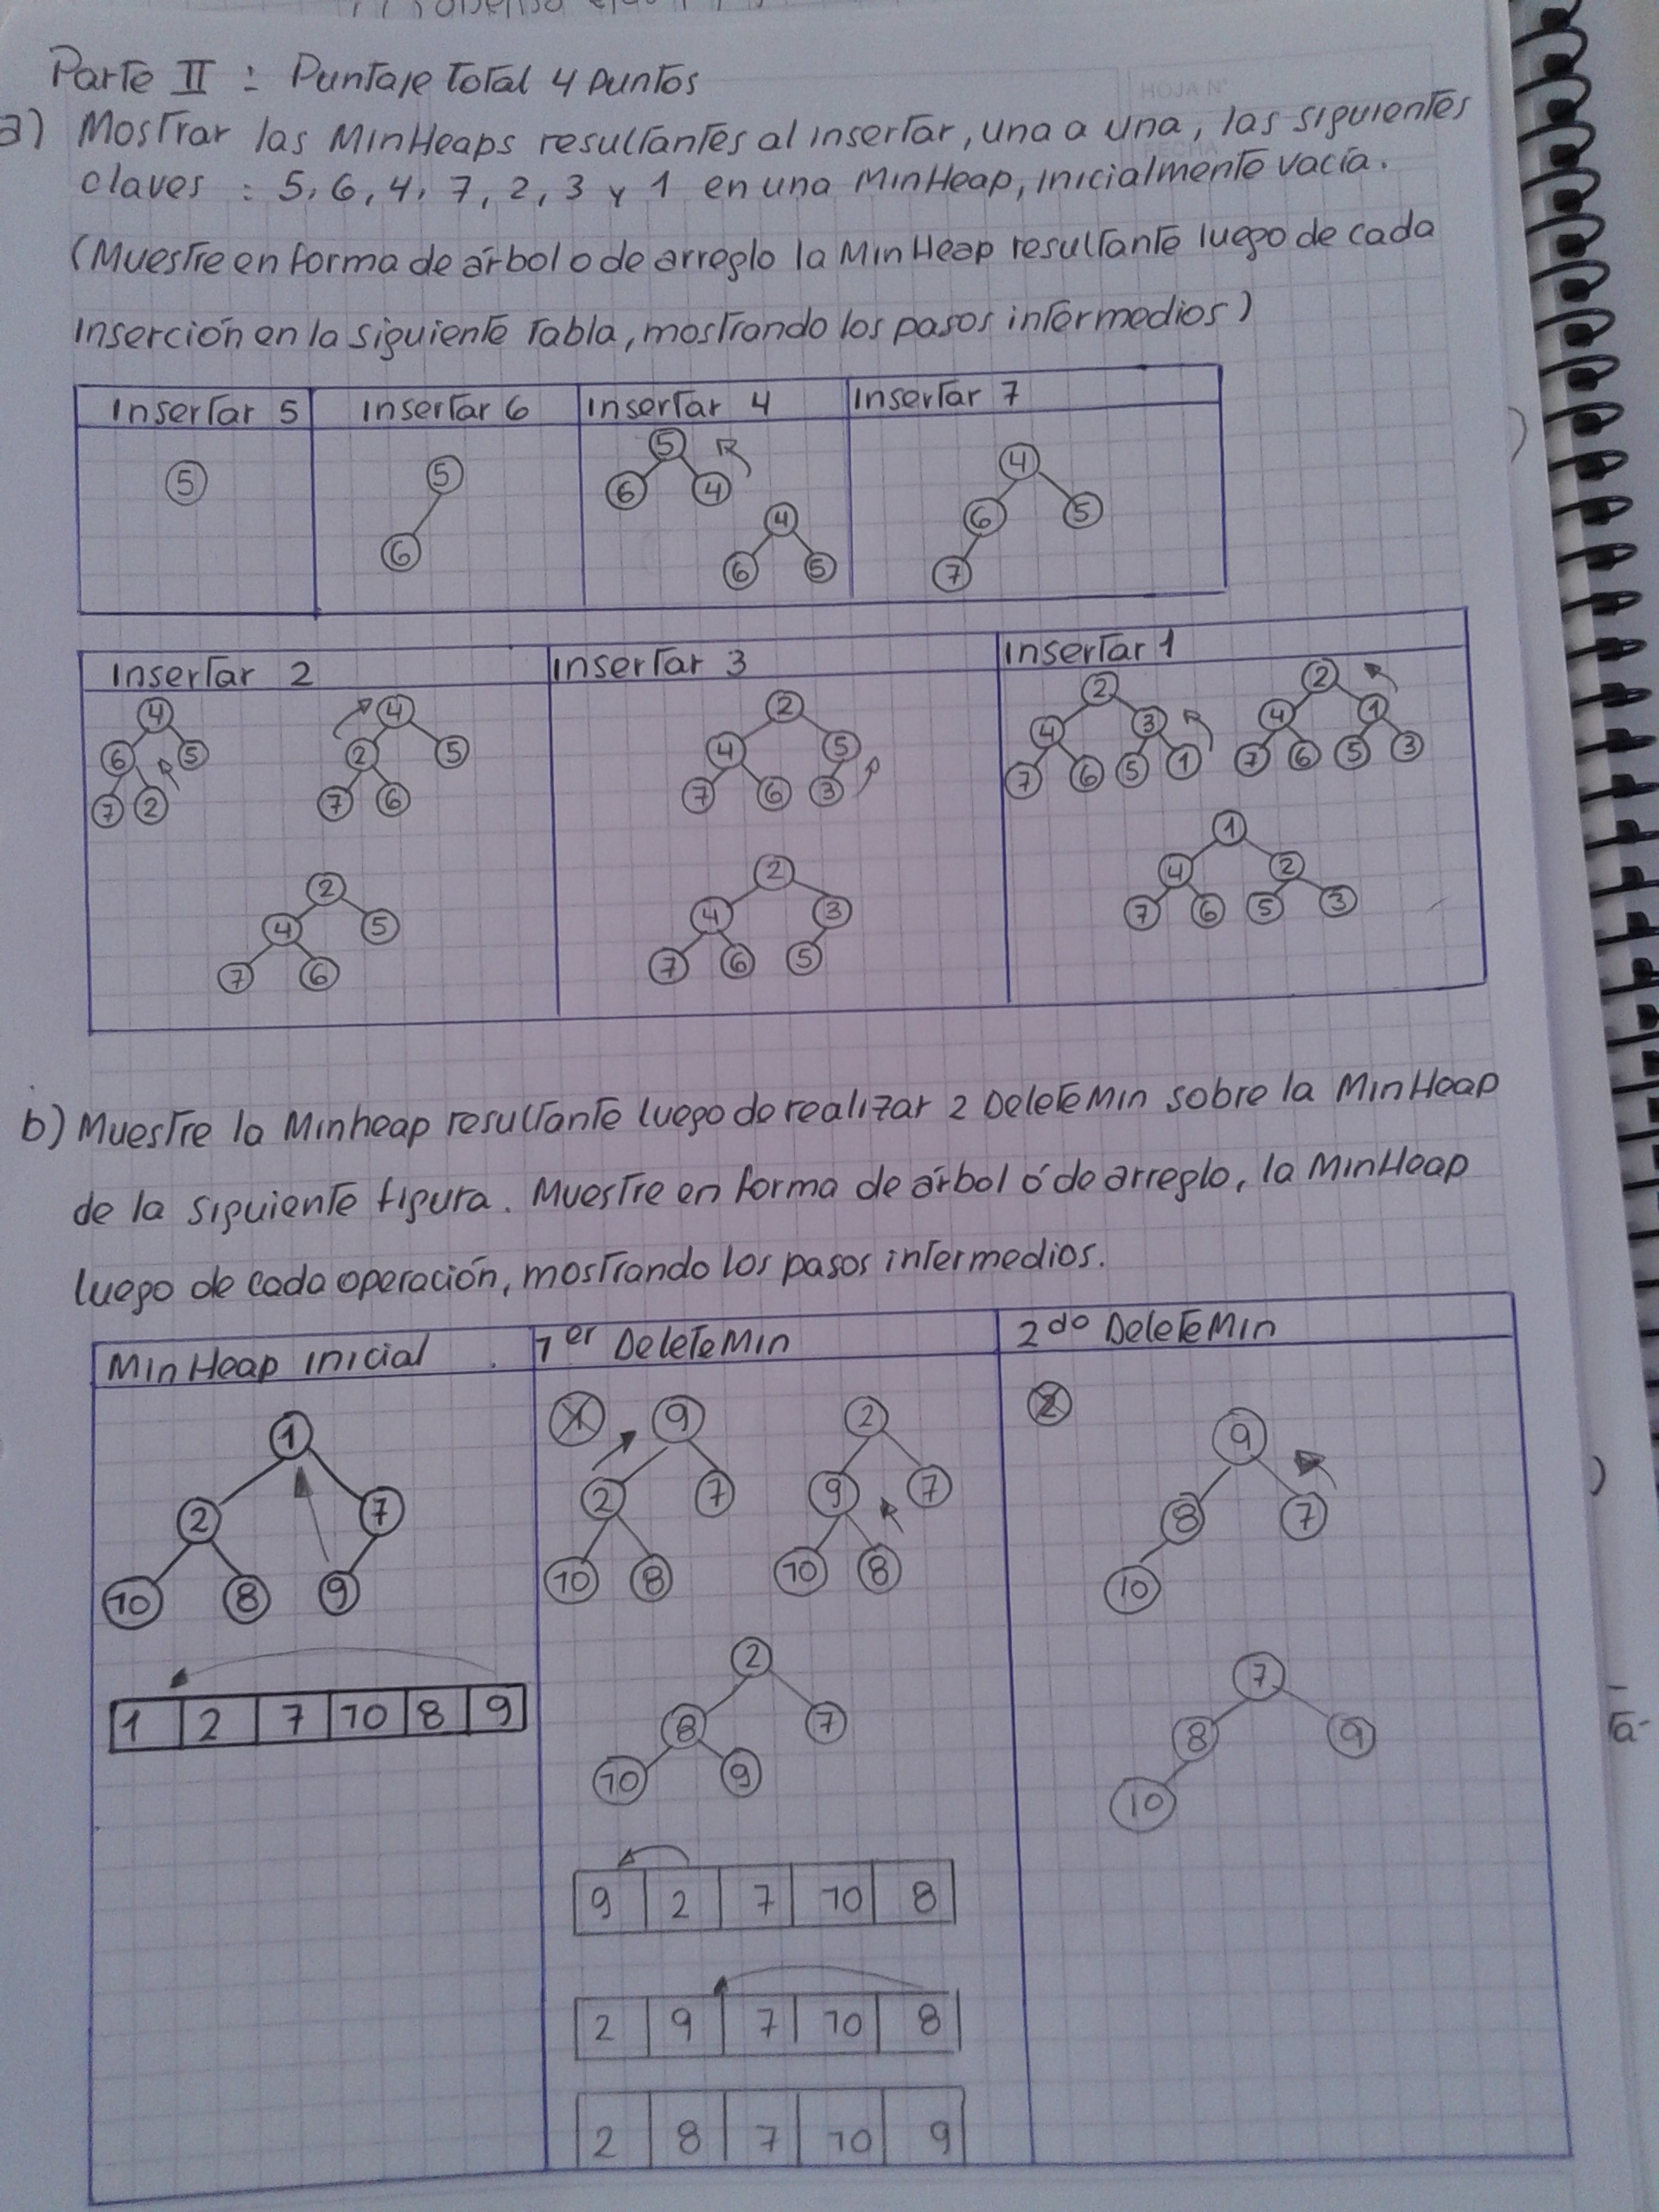 Parte II : Puntaje total 4 puntos
HOJA N°
FECHA
a) Mostrar las MinHeaps resultantes al insertar, una a una, las siguientes
claves : 5, 6, 4, 7, 2, 3 y 1 en una MinHeap, inicialmente vacía.
(Muestre en forma de árbol o de arreglo la MinHeap resultante luego de cada
inserción en la siguiente tabla, mostrando los pasos intermedios)
Insertar 5 Insertar 6 Insertar 4 Insertar 7
5
5
6
5
6 4
4
6 5
4
6 5
7
Insertar 2 Insertar 3 Insertar 1
4
6 5
7 2
4
2 5
7 6
2
4 5
7 6
2
4 5
7 6 3
2
4 3
7 6 5
2
4 3
7 6 5 1
2
4 1
7 6 5 3
1
4 2
7 6 5 3
b) Muestre la Minheap resultante luego de realizar 2 DeleteMin sobre la MinHeap
de la siguiente figura. Muestre en forma de árbol ó de arreglo, la MinHeap
luego de cada operación, mostrando los pasos intermedios.
MinHeap inicial . 1er DeleteMin 2do DeleteMin
1
2 7
10 8 9
1 2 7 10 8 9
1
9
2 7
10 8
2
9 7
10 8
2
8 7
10 9
9 2 7 10 8
2 9 7 10 8
2 8 7 10 9
2
9
8 7
10
7
8 9
10